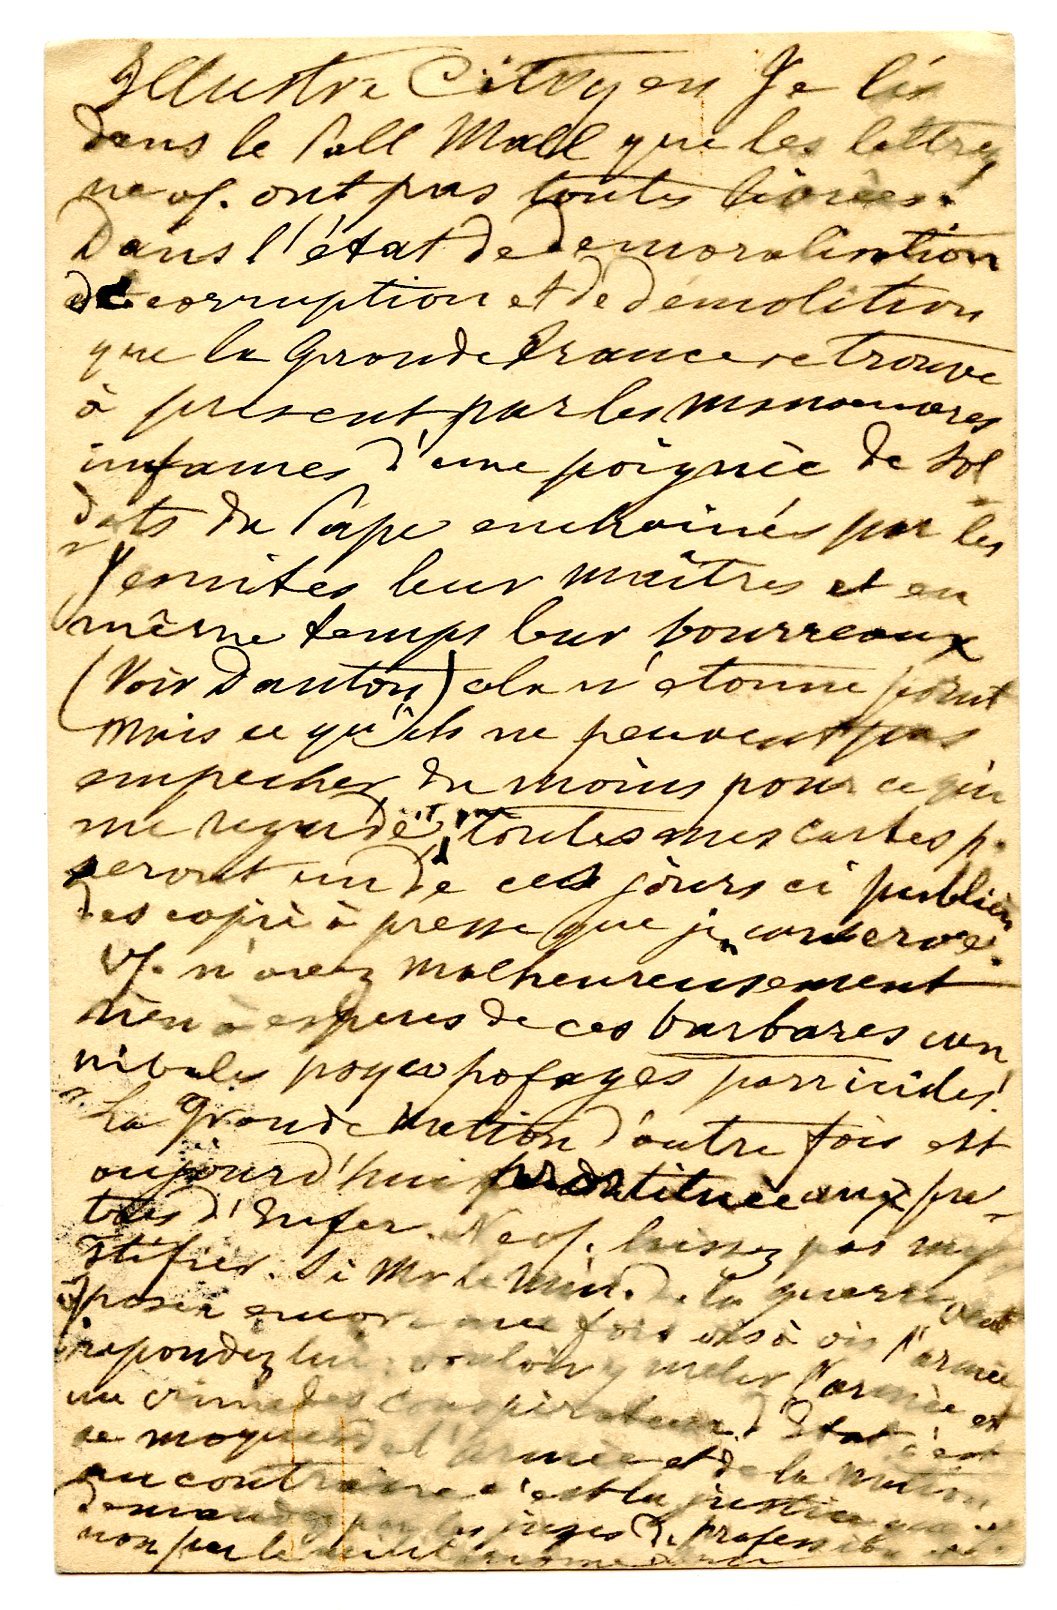 Illustre Citoyen Je lis
dans le Pall Mall que les lettres
ne vs. ont pas toutes livrées!
Dans l'état de demoralisation
de corruption et de démolition
que la Grande France se trouve
à present par les manoeuvres
infames d'une poignèe de Sol
dats du Pape enchainés par les
Jesuites leur maîtres et en
même temps leur bourreaux
(Voir Danton) cela n'etonne point
Mais ce qu'ils ne peuvent pas
empecher du moins pour ce qui
me regarde, toutes mes cartes p.
seront un de ces jours ci publièes
des copie à presse que je conserve.
Vs. n'avez malheureusement
rien à esperer de ces barbares can
nibales parricides!
La Grande Nation d'autre fois est
aujourd'hui prostituèe aux prê
tres d'Enfer. Ne vs. laissez pas my
stifier. Si Mr le Min. de la guerre veut
poser encore une fois vis à vis l'armèe
repondez lui: vouloir y meler l'armèe est
un crime des conspirateurs d'Etat c'est
se moquer de l'armèe et de la Nation
au contraire c'est la justice
demandèe par les juges de profession et
non par le militarisme